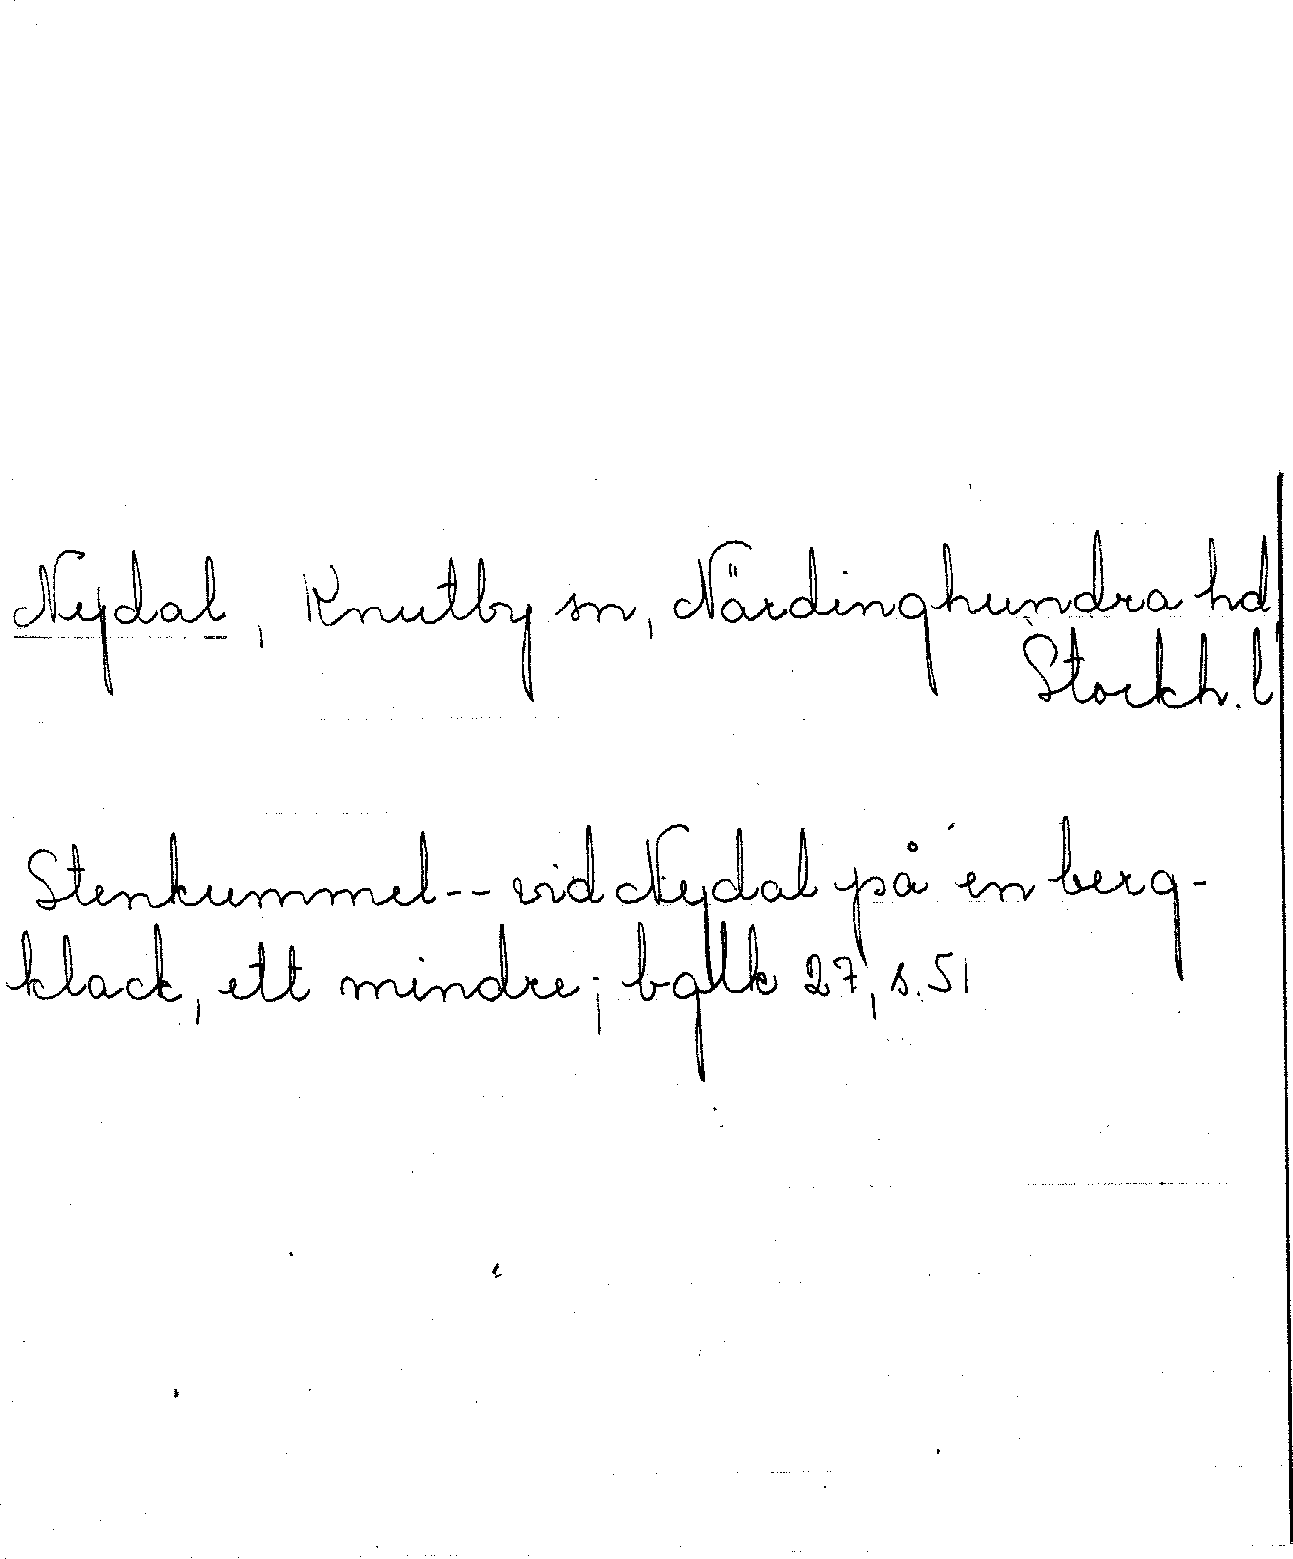 Nydal, Knutby sn, Närdinghundra hd,
Stockh. l
Stenkummel-- vid Nydal på en berg-
klack, ett mindre; bglk 27, s. 51